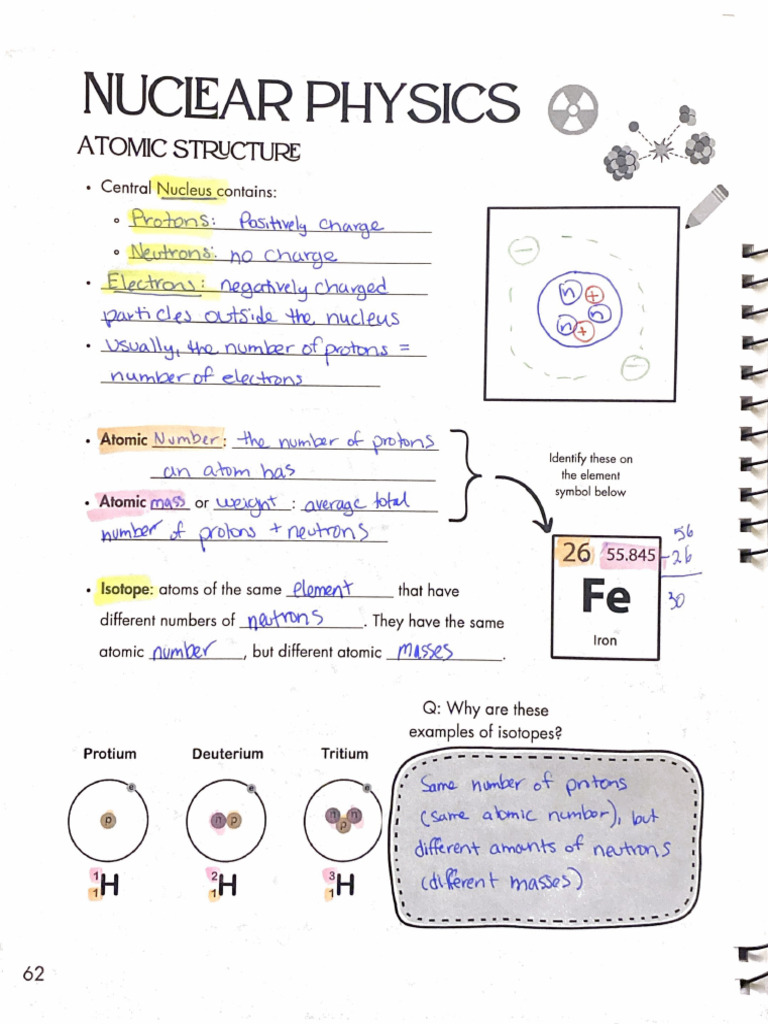 NUCLEAR PHYSICS
ATOMIC STRUCTURE
• Central Nucleus contains:
Protons: Positively charge
Neutrons: no charge
• Electrons: negatively charged
particles outside the nucleus
• Usually, the number of protons =
number of electrons
n +
n
n +
• Atomic Number: the number of protons
an atom has
• Atomic mass or weight: average total
number of protons + neutrons
Identify these on
the element
symbol below
26 55.845
Fe
Iron
56
-26
30
• Isotope: atoms of the same element that have
different numbers of neutrons. They have the same
atomic number, but different atomic masses.
Q: Why are these
examples of isotopes?
Protium Deuterium Tritium
e e e
p n p n n p
1 1 H 2 1 H 3 1 H
Same number of protons
(same atomic number), but
different amounts of neutrons
(different masses)
62